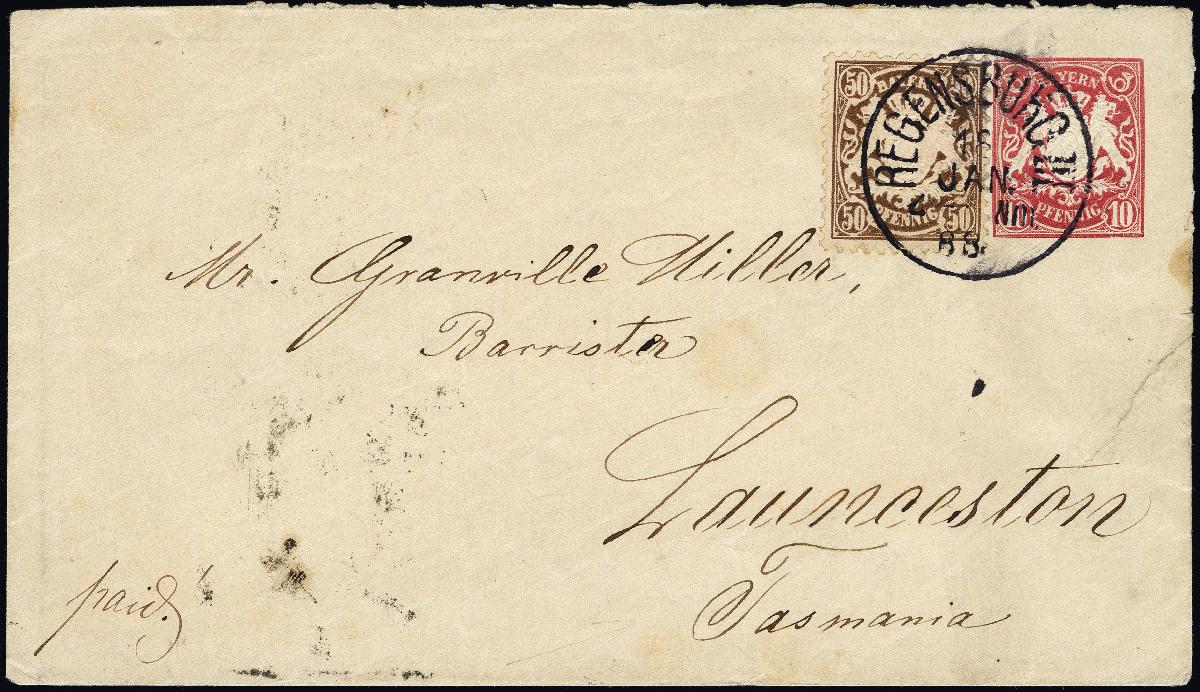 50 BAYERN
50 PFENNIG 50
BAYERN
PFENNIG 10
REGENSBURG III
JAN.
4 Nm.
Mr. Granville Miller,
Barrister
Launceston
Tasmania
paid.